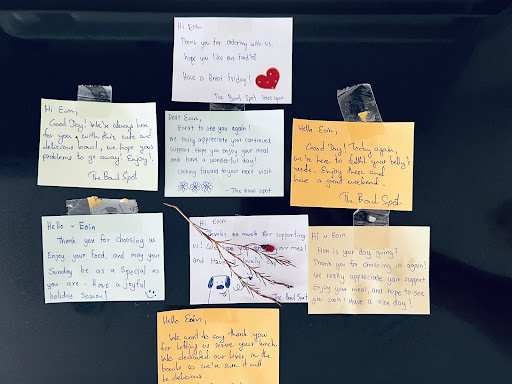 Hi Eoin
Thank you for ordering with us
hope you like our food
Have a Great Friday!
The Bowl Spot love you.
Hi Eoin,
Good Day! We're always here
for you, with this cute and
delicious bowl, we hope your
problems to go away! Enjoy!
The Bowl Spot
Dear Eoin,
Great to see you again!
We truly appreciate your continued
support. Hope you enjoy your meal
and have a wonderful day!
Looking forward to your next visit
- The bowl spot
Hello Eoin,
Good Day! Today again,
we're here to fulfill your belly's
needs. Enjoy these and
have a great weekend.
The Bowl Spot
Hello - Eoin
Thank you for choosing us
Enjoy your food, and may your
Sunday be as a Special as
you are. Have a joyful
holiday Season!
Hi Eoin
Thanks so much for supporting
us! your meal
and Have
The Bowl Spot
Hi ~ Eoin
How is your day going?
Thank you for choosing us again!
we really appreciate your support
Enjoy your meal, and hope to see
you soon! Have a nice day!
Hello Eoin,
We want to say thank you
for letting us serve your lunch.
We dedicated our lives, in the
bowls so we're sure it will
be delicious.